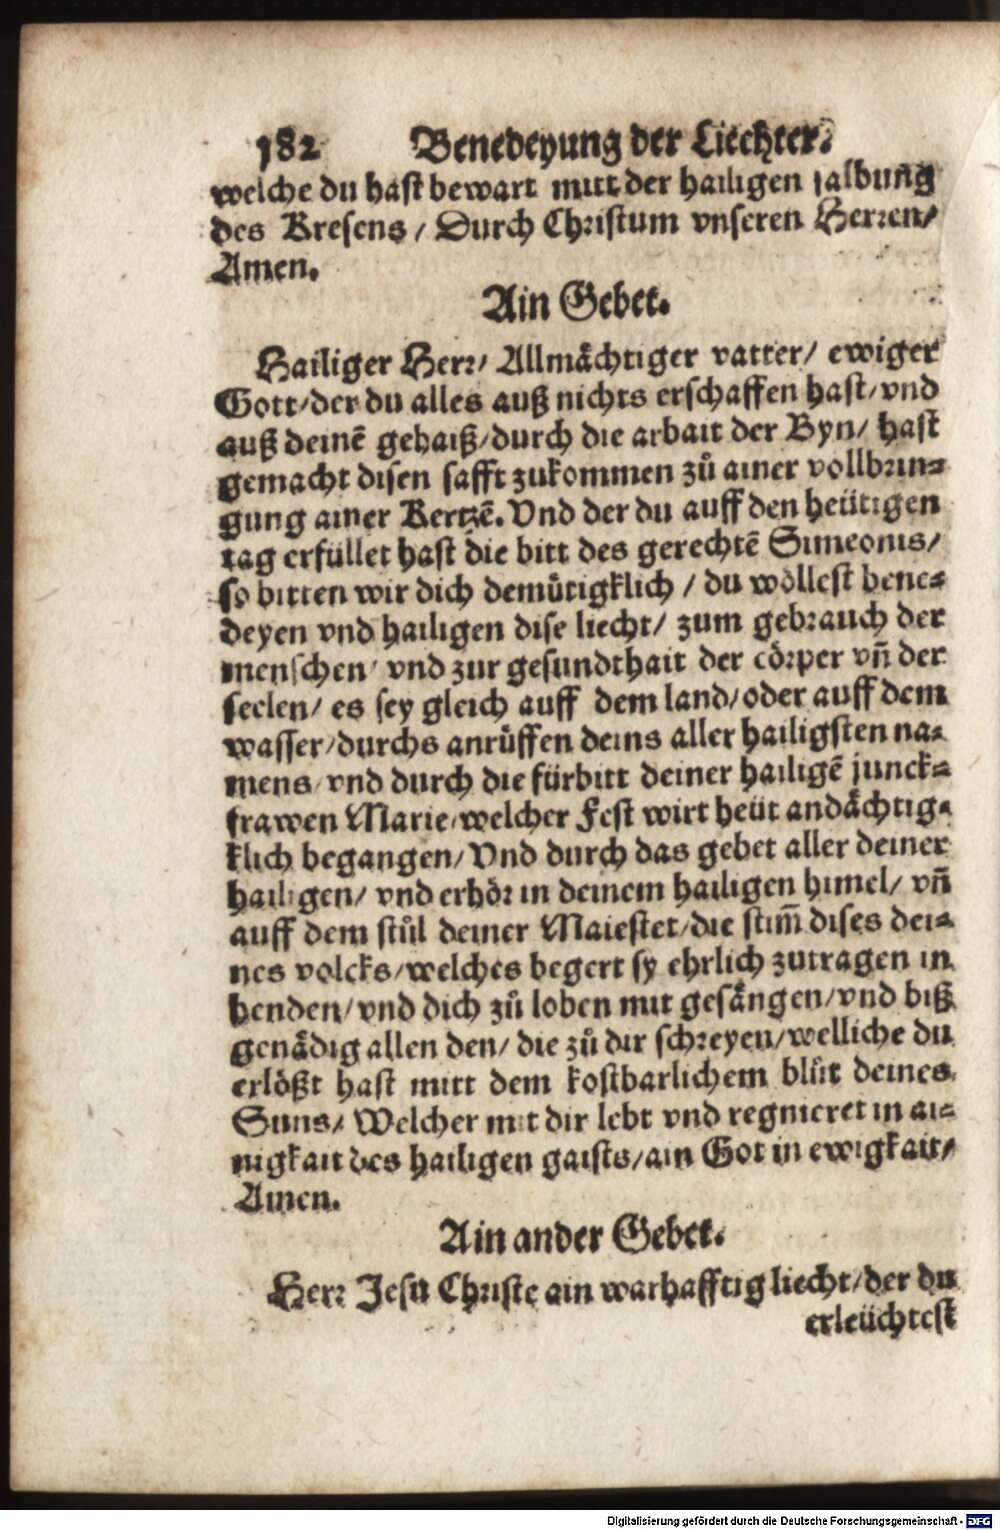 182 Benedeyung der Liechter.
welche du hast bewart mitt der hailigen salbung
des Kresens / Durch Christum vnseren Herren/
Amen.
Ain Gebet.
Hailiger Herr/ Allmächtiger vatter/ ewiger
Gott/der du alles auß nichts erschaffen hast/vnd
auß deinē gehaiß/durch die arbait der Byn/ hast
gemacht disen safft zukommen zů ainer vollbrin⸗
gung ainer Kertzē. Vnd der du auff den heütigen
tag erfüllet hast die bitt des gerechtē Simeonis/
so bitten wir dich demůtigklich / du wöllest bene⸗
deyen vnd hailigen dise liecht/ zum gebrauch der
menschen/ vnd zur gesundthait der cörper vñ der
seelen/ es sey gleich auff dem land/oder auff dem
wasser/durchs anrůffen deins aller hailigsten na⸗
mens/vnd durch die fürbitt deiner hailigē junck⸗
frawen Marie/welcher Fest wirt heüt andächtig⸗
klich begangen/ Vnd durch das gebet aller deiner
hailigen/ vnd erhör in deinem hailigen himel/ vñ
auff dem stůl deiner Maiestet/die stim̄ dises dei⸗
nes volcks/welches begert sy ehrlich zutragen in
henden/vnd dich zů loben mit gesängen/vnd biß
genädig allen den/ die zů dir schreyen/welliche du
erlößt hast mitt dem kostbarlichem blůt deines
Suns/ Welcher mit dir lebt vnd regnieret in ai⸗
nigkait des hailigen gaists/ain Got in ewigkait/
Amen.
Ain ander Gebet.
Herr Jesu Christe ain warhafftig liecht/der du
erleüchtest
Digitalisierung gefördert durch die Deutsche Forschungsgemeinschaft - DFG